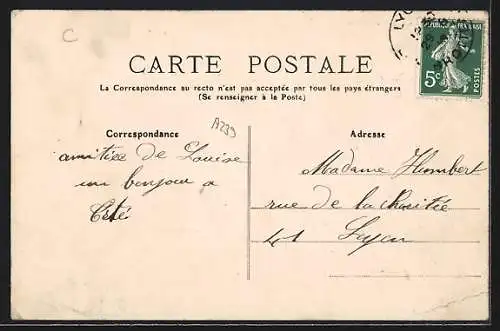 C
LYO
RHONE
REPUBLIQUE FRANÇAISE
5c
POSTES
CARTE POSTALE
La Correspondance au recto n'est pas acceptée par tous les pays étrangers
(Se renseigner à la Poste)
A239
Correspondance
Adresse
amitiée de Louise
un bonjour a
Madame Humbert
rue de la Charitée
41 Lyon